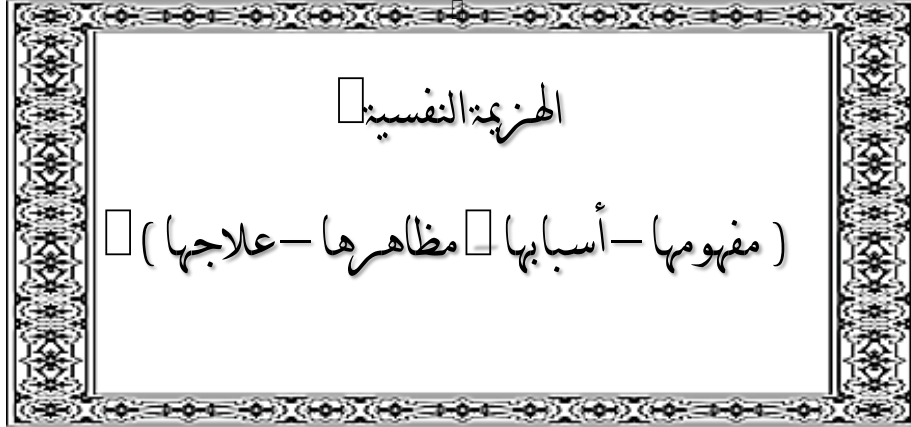 الهزيمة النفسية
( مفهومها – أسبابها – مظاهرها – علاجها )